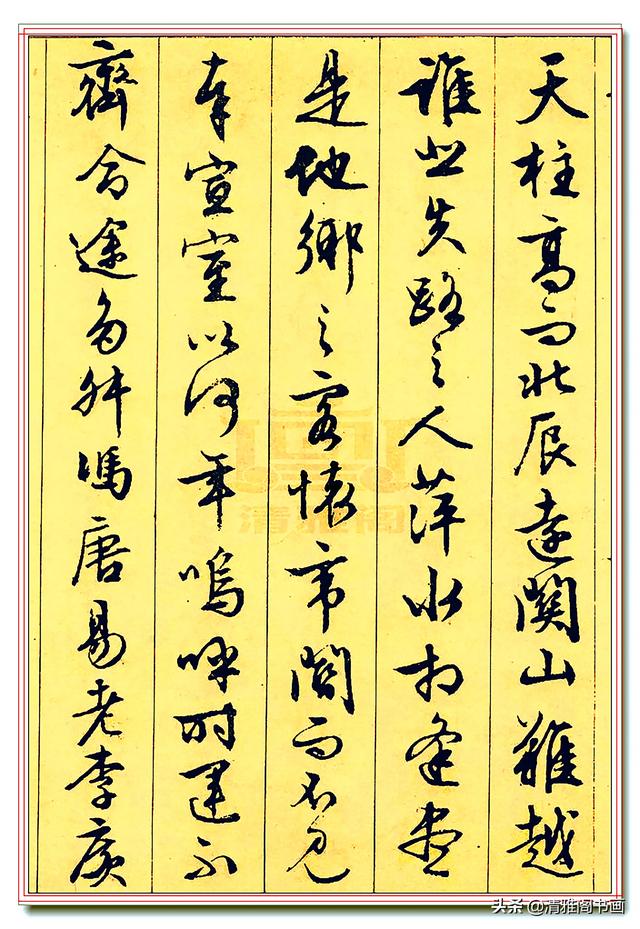 天柱高而北辰遠關山難越
誰悲失路之人萍水相逢盡
是他鄉之客懷帝閽而不見
奉宣室以何年嗚呼時運不
齊命途多舛馮唐易老李廣
清雅阁
头条 @清雅阁书画